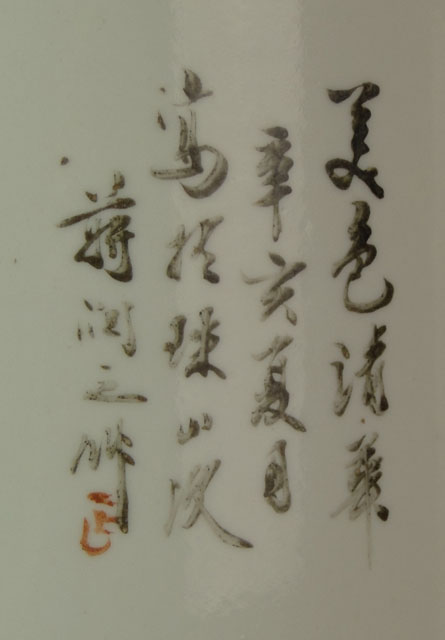 美色清華
辛亥夏月
寫於珠山
蔣潤之作